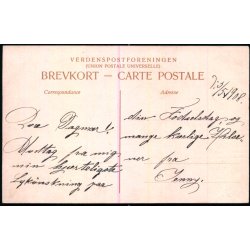 VERDENSPOSTFORENINGEN
(UNION POSTALE UNIVERSELLE)
BREVKORT – CARTE POSTALE
Correspondance
Adresse
Kære Dagmar!
Modtag fra mig
min hjerteligste
Lykønskning paa
din Fødselsdag, og
mange kærlige Hilsener
fra
Jenny.